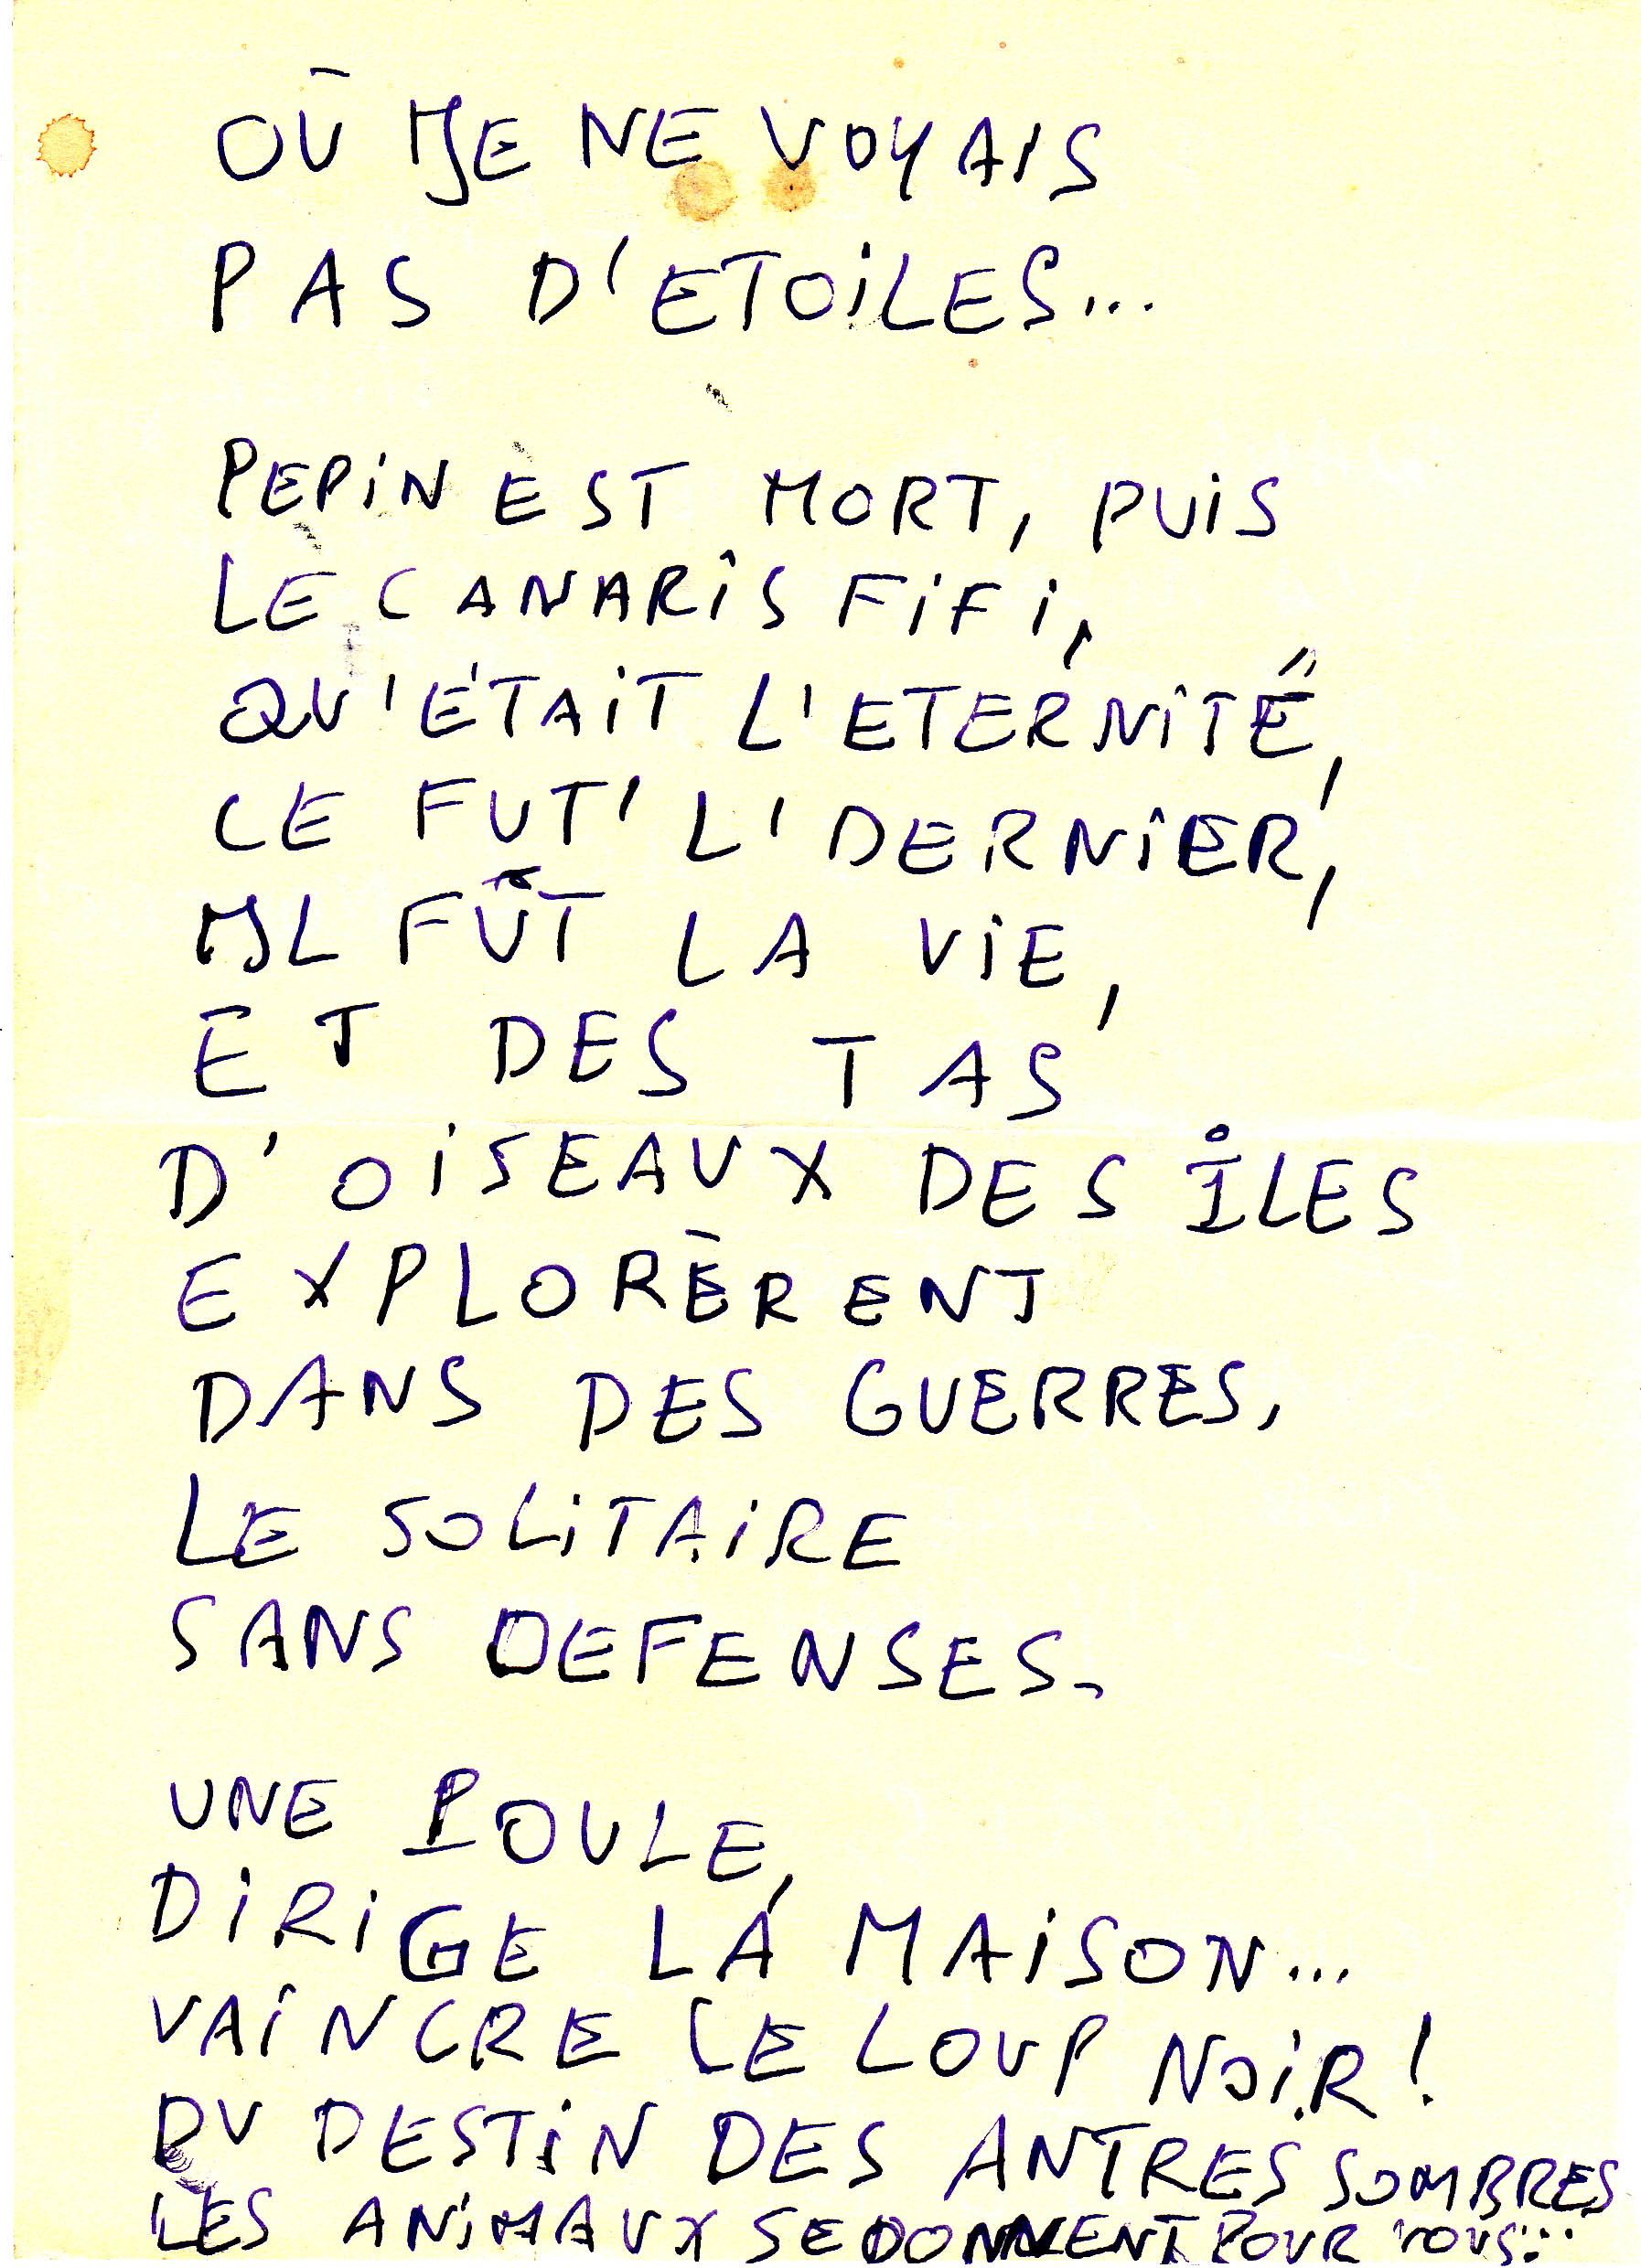 OÙ JE NE VOYAIS
PAS D'ETOILES...
PEPIN EST MORT, PUIS
LE CANARIS FIFI,
QU'ÉTAIT L'ETERNITÉ,
CE FUT' L'DERNIER,
IL FÛT LA VIE,
ET DES TAS
D'OISEAUX DES ÎLES
EXPLORÈRENT
DANS DES GUERRES,
LE SOLITAIRE
SANS DEFENSES.
UNE POULE,
DIRIGE LA MAISON...
VAINCRE LE LOUP NOIR!
DU DESTIN DES ANTRES SOMBRES
LES ANIMAUX SE DONNENT POUR VOUS...